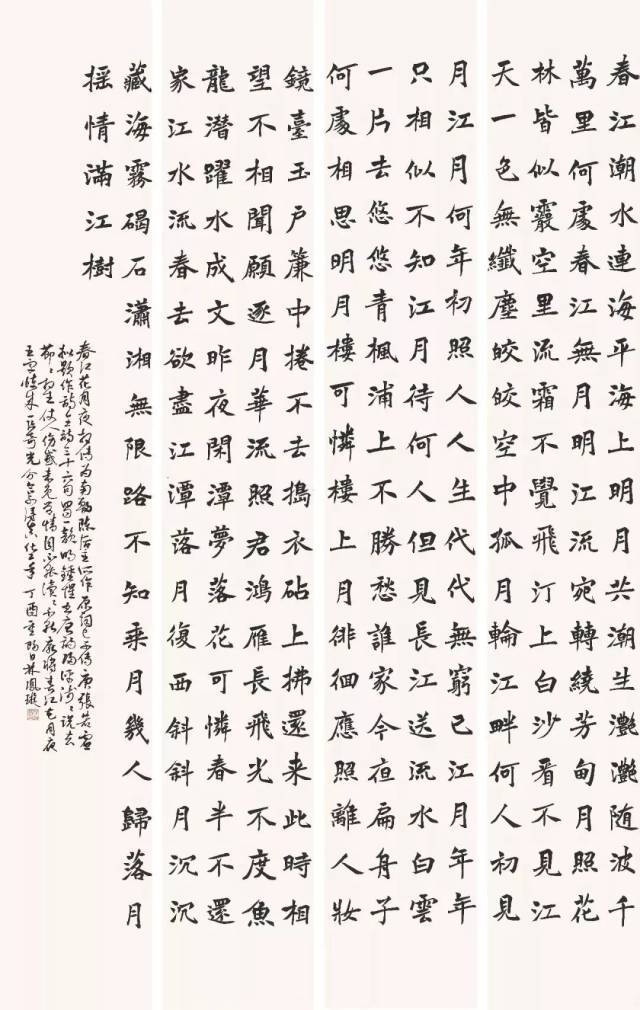 春江潮水連海平海上明月共潮生灧灧随波千
萬里何處春江無月明江流宛轉繞芳甸月照花
林皆似霰空里流霜不覺飛汀上白沙看不見江
天一色無纖塵皎皎空中孤月輪江畔何人初見
月江月何年初照人人生代代無窮已江月年年
只相似不知江月待何人但見長江送流水白雲
一片去悠悠青楓浦上不勝愁誰家今夜扁舟子
何處相思明月樓可憐樓上月徘徊應照離人妝
鏡臺玉戶簾中捲不去搗衣砧上拂還来此時相
望不相聞願逐月華流照君鴻雁長飛光不度魚
龍潛躍水成文昨夜閑潭夢落花可憐春半不還
家江水流春去欲盡江潭落月復西斜斜月沉沉
藏海霧碣石瀟湘無限路不知乘月幾人歸落月
摇情滿江樹
春江花月夜相傳為南朝陳后主所作原詞已不傳唐張若虛
拟題作詩
春江花月夜
丁酉重陽日林鳳